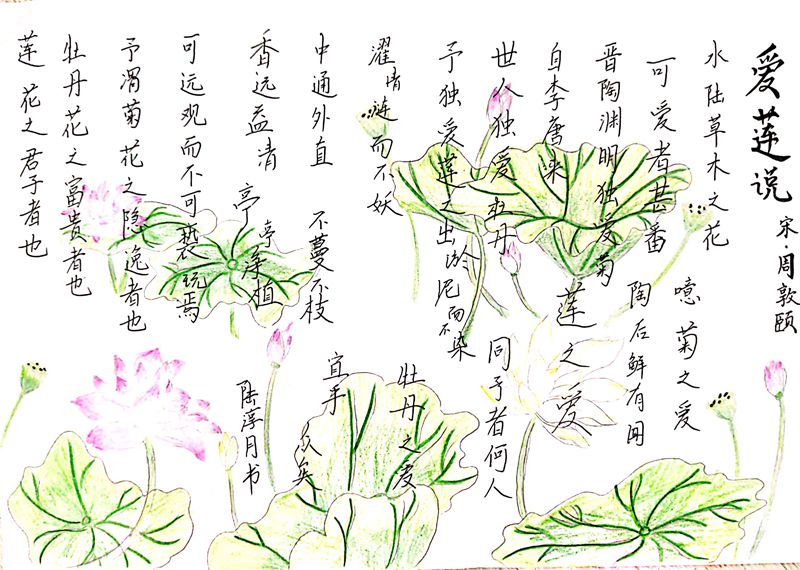 爱莲说
宋·周敦颐
水陆草木之花
可爱者甚番
晋陶渊明独爱菊
自李唐来
世人独爱牡丹
予独爱莲之出淤泥而不染
濯清涟而不妖
中通外直
不蔓不枝
香远益清
亭亭净植
可远观而不可亵玩焉
予谓菊花之隐逸者也
牡丹花之富贵者也
莲花之君子者也
噫菊之爱
陶后鲜有闻
莲之爱
同予者何人
牡丹之爱
宜乎
众矣
陆淳月书